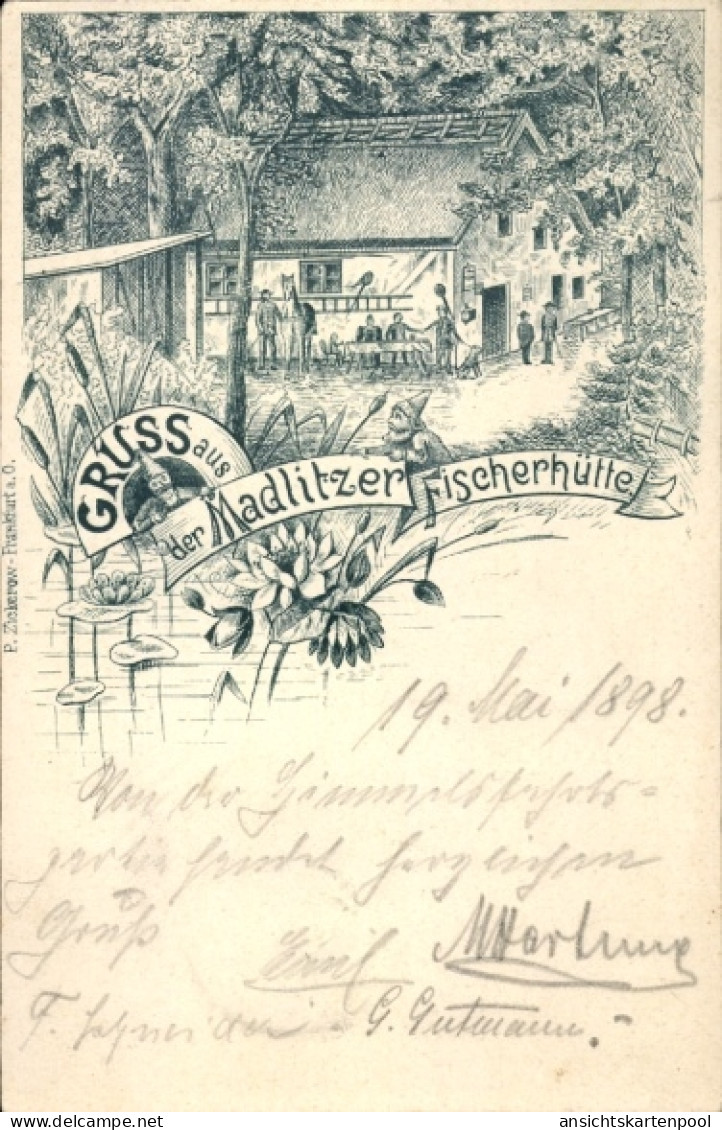 GRUSS aus
der Madlitzer Fischerhütte
P. Zickerow - Frankfurt a. O.
19. Mai 1898.
Von der Himmelsfahrts-
partie sendet herzlichen
Gruß
Emil MHartung
F. Schneider G. Gutmann.
ansichtskartenpool